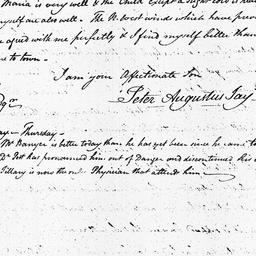 Maria is very well & the Child except a slight cold is
myself are also well. The N. west winds which have prev
agreed with me perfectly & I find myself better than
to town –
I am your Affectionate Son
Peter Augustus Jay
Thursday –
Mr Banyer is better today than he has yet been since he came to
Dr Post has pronounced him out of Danger and discontinued his
Tillary is now the only Physician that attends him –